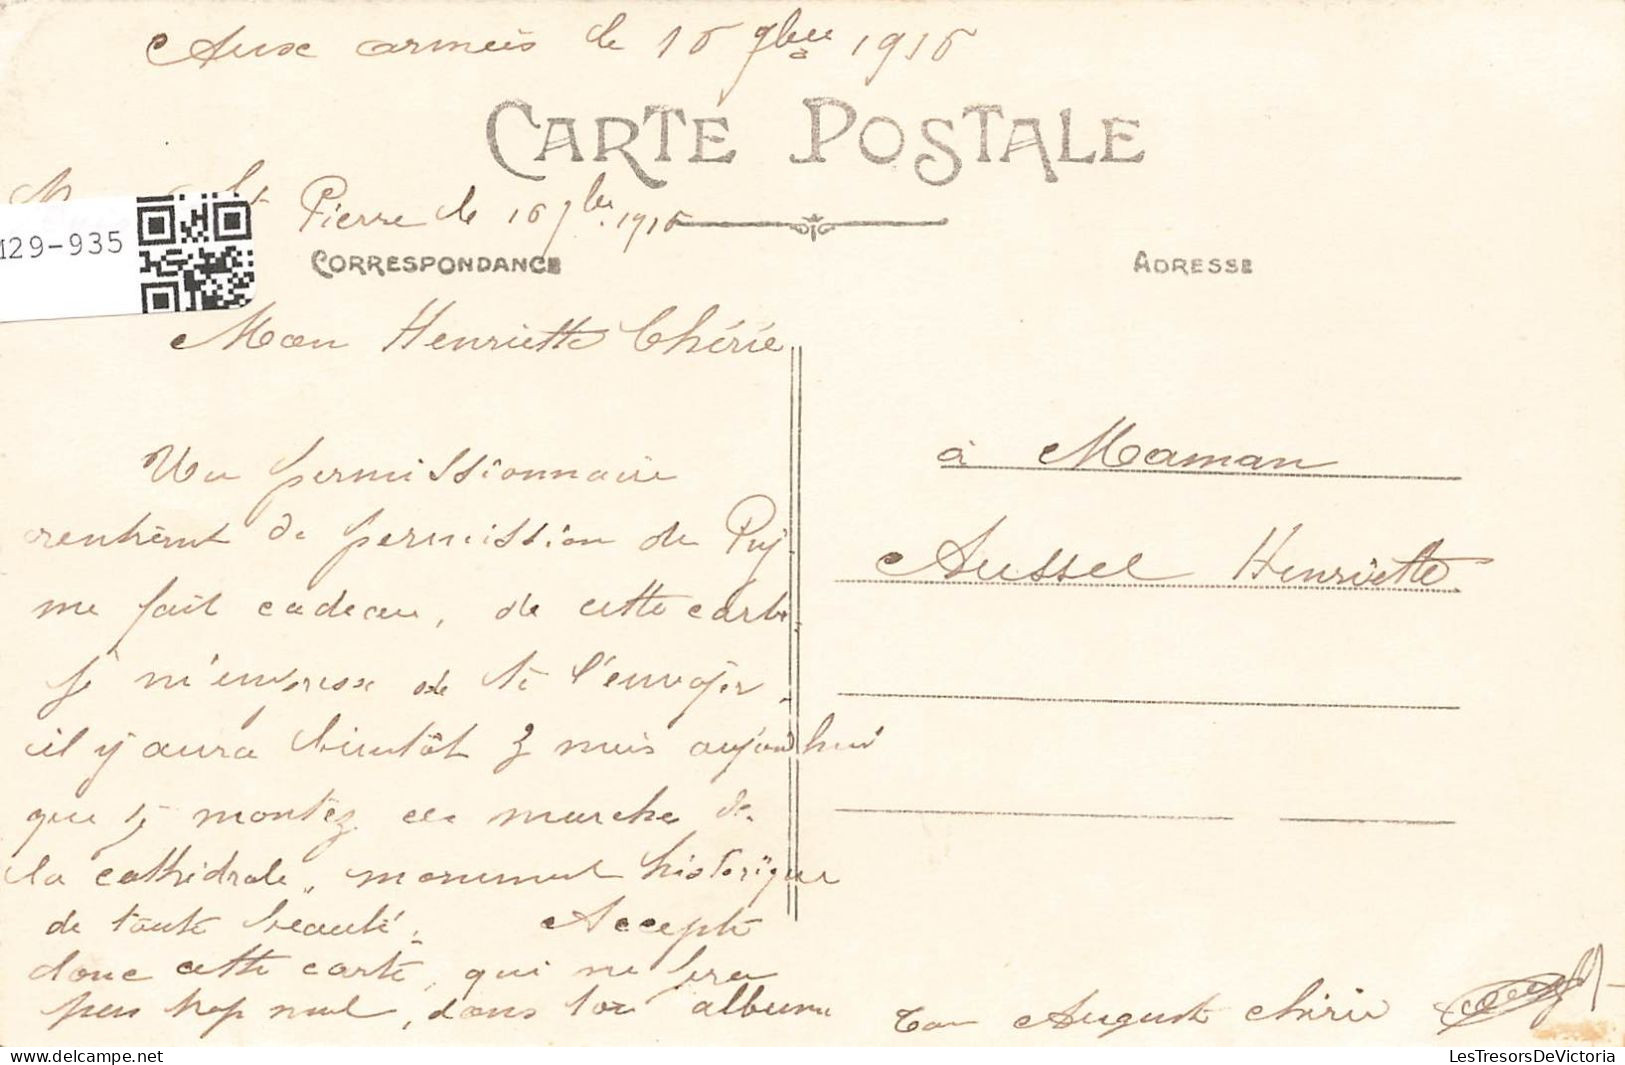 Aux armées le 16 9bre 1916
CARTE POSTALE
Pierre le 16 9bre 1916
129-935
CORRESPONDANCE
ADRESSE
Mon Henriette Chérie
Un permissionnaire
rentrant de permission du Puy
me fait cadeau, de cette carte.
Je m'empresse de te l'envoyer.
il y aura bientôt 3 mois aujourd'hui
que tu montez les marches de
la cathédrale, monument historique
de toute beauté. Accepte
donc cette carte, qui ne sera
pas trop mal, dans ton album
à Maman
Aussel Henriette
Ton Auguste chéri
LesTresorsDeVictoria